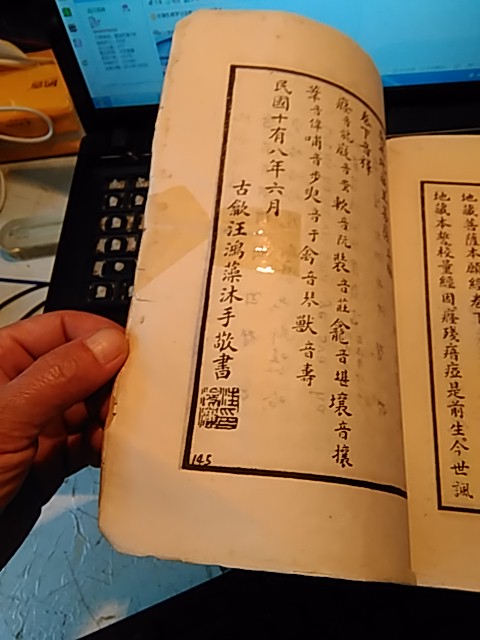 地藏菩薩本願經卷下
地藏本誓校量經因癃殘瘖瘂是前生今世諷
卷下音釋
癃音龍 音 軟音阮 音莊龕音堪壤音攘
葦音偉哺音步 音于禽音 獸音壽
民國十有八年六月
古歙汪鴻藻沐手敬書
145